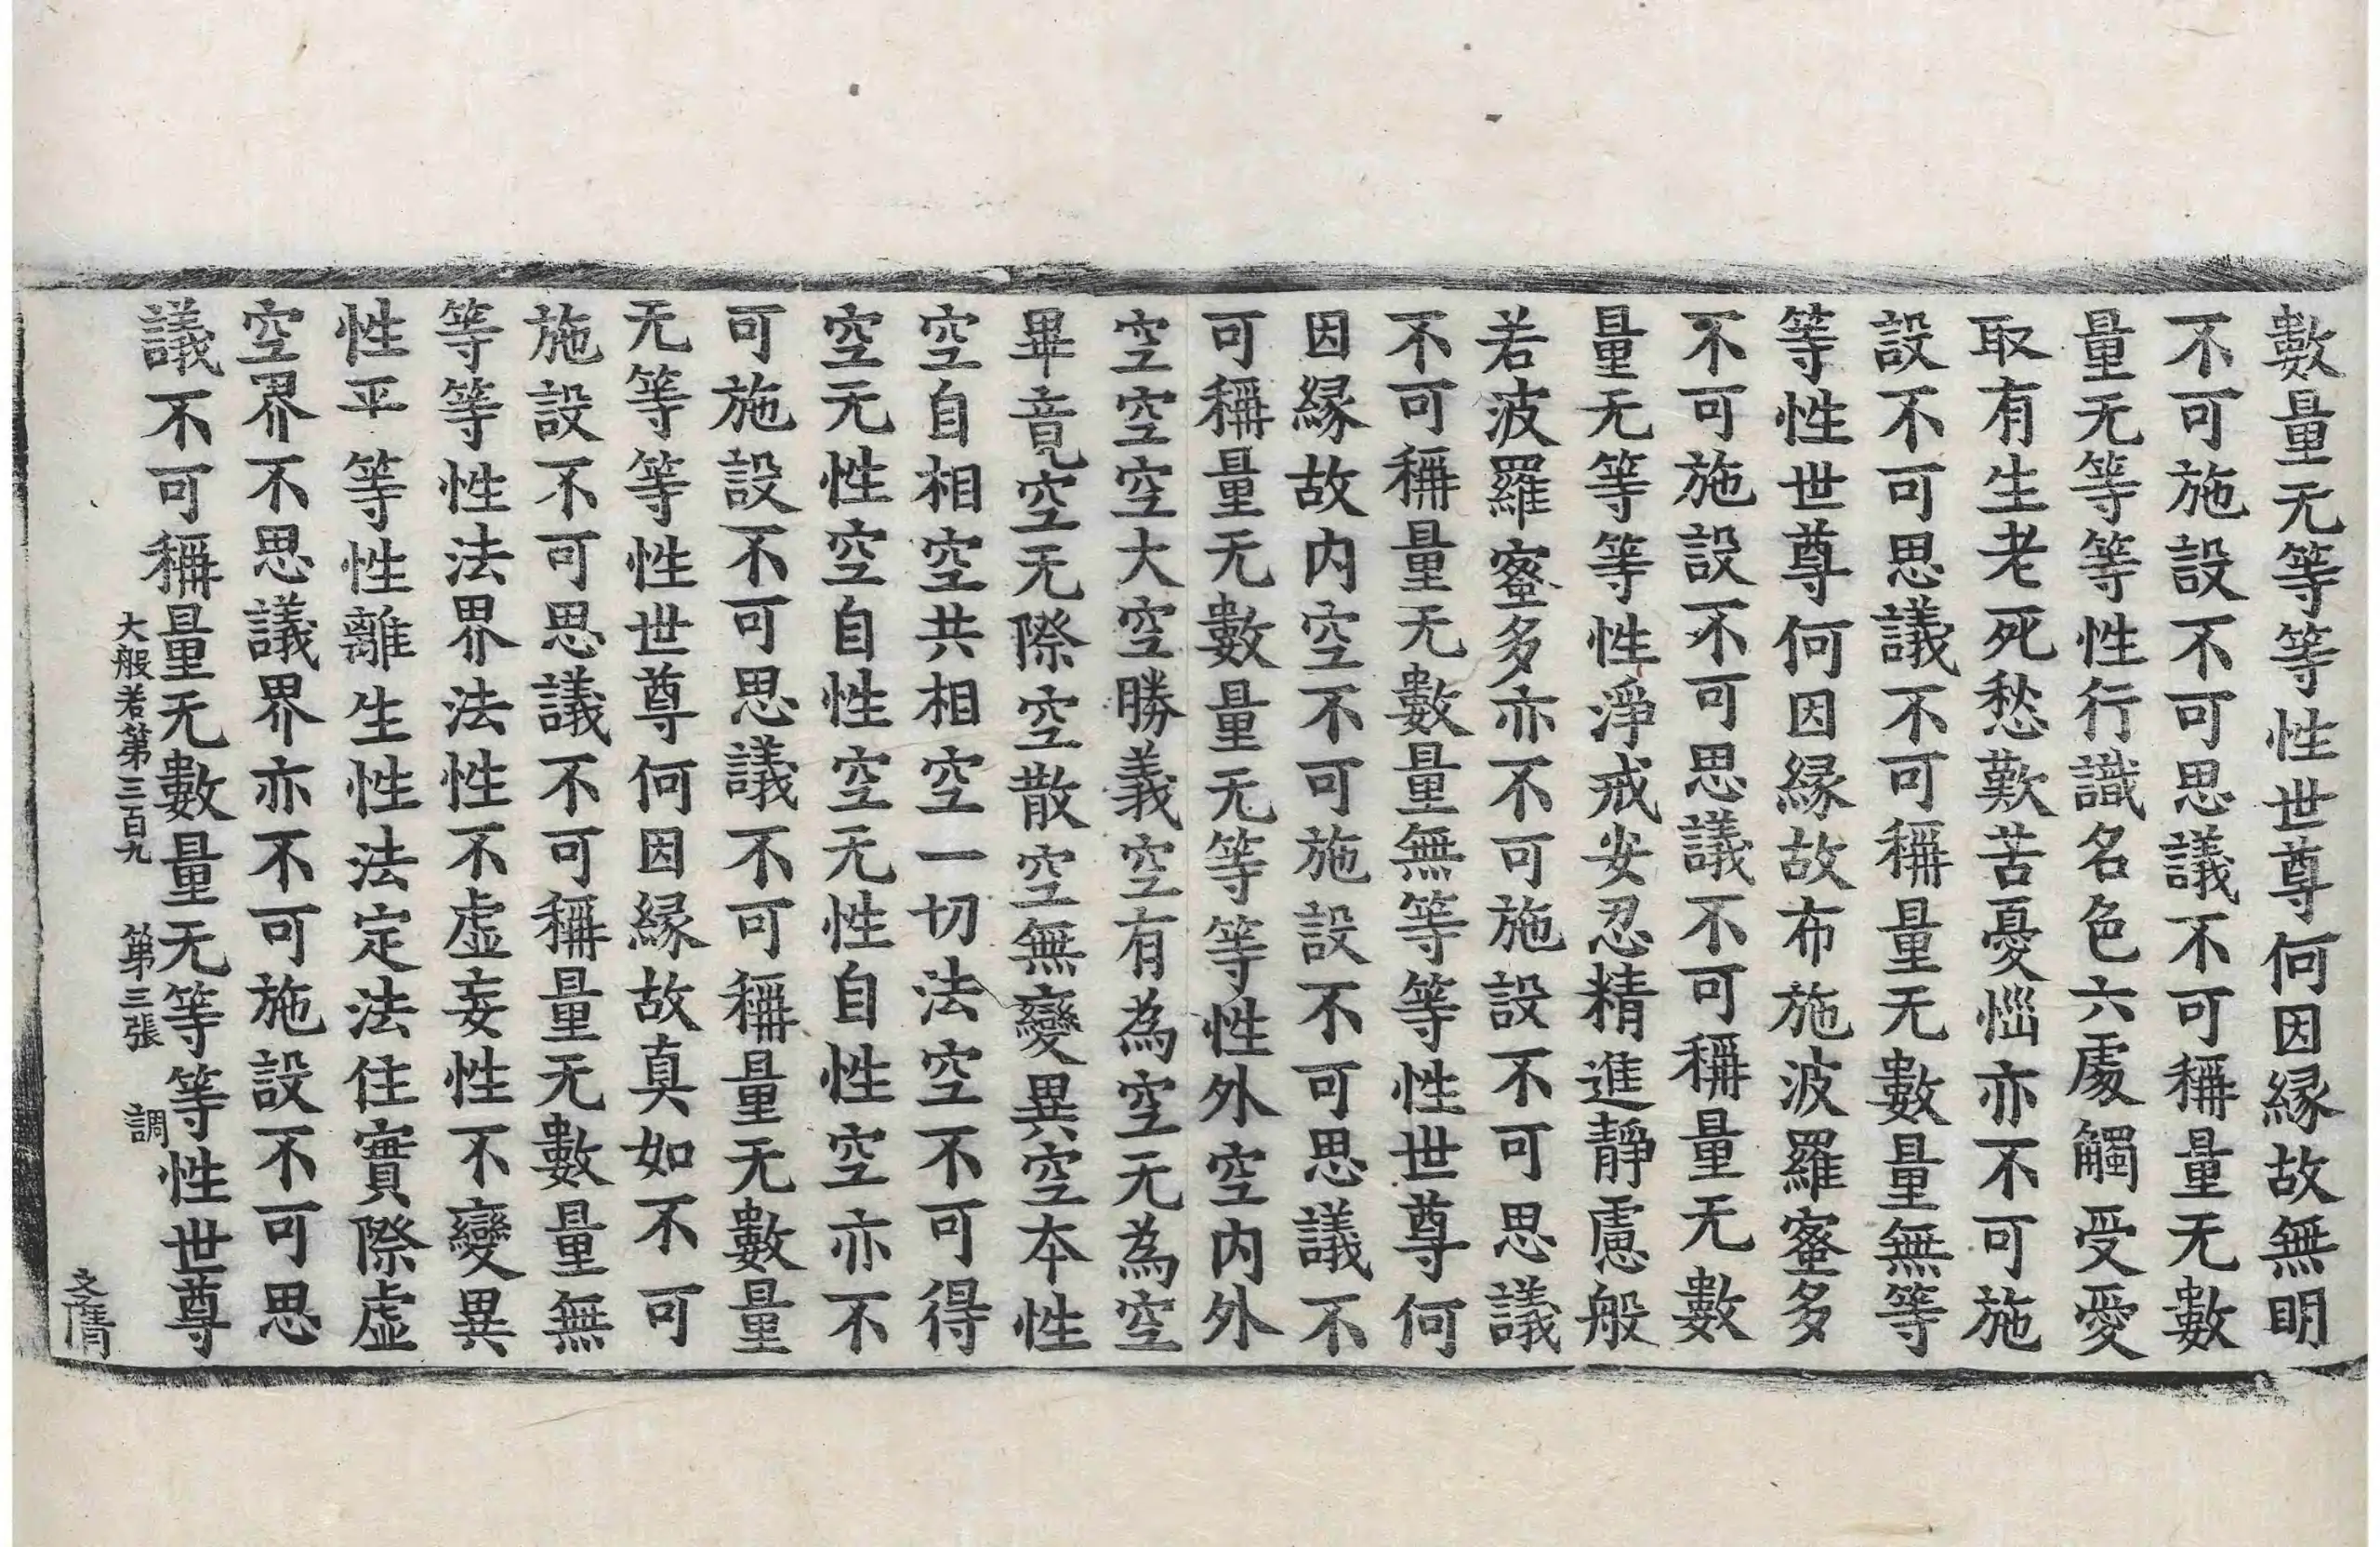 數量无等等性世尊何因緣故無明
不可施設不可思議不可稱量无數
量无等等性行識名色六處觸受愛
取有生老死愁歎苦憂惱亦不可施
設不可思議不可稱量无數量無等
等性世尊何因緣故布施波羅蜜多
不可施設不可思議不可稱量无數
量无等等性淨戒安忍精進靜慮般
若波羅蜜多亦不可施設不可思議
不可稱量无數量無等等性世尊何
因緣故内空不可施設不可思議不
可稱量无數量无等等性外空内外
空空空大空勝義空有為空无為空
畢竟空无際空散空無變異空本性
空自相空共相空一切法空不可得
空无性空自性空无性自性空亦不
可施設不可思議不可稱量无數量
无等等性世尊何因緣故真如不可
施設不可思議不可稱量无數量無
等等性法界法性不虛妄性不變異
性平等性離生性法定法住實際虛
空界不思議界亦不可施設不可思
議不可稱量无數量无等等性世尊
大般若第三百九 第三張 調